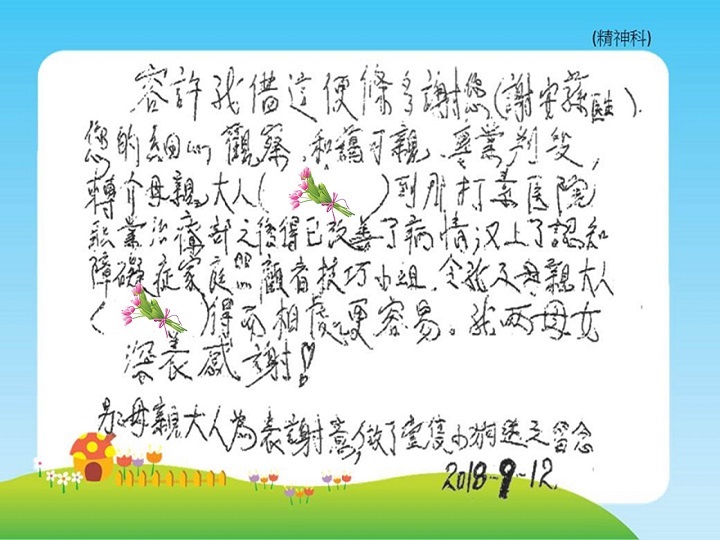 (精神科)
容許我借這便條多謝您(謝安蘇醫生).
您的細心觀察,和藹可親、專業判段,
轉介母親大人( )到那打素医院
職業治療部之後得已改善了病情,又上了認知
障礙症家庭照顧者技巧小組,令我及母親大人
( )得而相處更容易。我両母女
深表感謝!
母親大人為表謝意,做了 小狗送之留念
2018-9-12